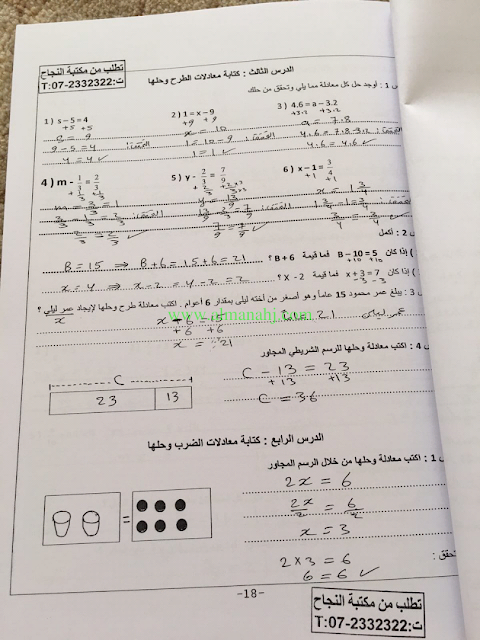 تطلب من مكتبة النجاح
ت:07-2332322:T
الدرس الثالث : كتابة معادلات الطرح وحلها
1 : أوجد حل كل معادلة مما يلي وتحقق من حلك
1) s – 5 = 4   2) 1 = x – 9   3) 4.6 = a – 3.2
+5 +5   +9 +9   +3.2 +3.2
s = 9   x = 10   a = 7.8
9 – 5 = 4   1 = 10 – 9   4.6 = 7.8 - 3.2
4 = 4 ✓   1 = 1 ✓   4.6 = 4.6 ✓
4) m - 1/3 = 2/3   5) y - 2/3 = 7/9   6) x – 1 = 3/4
+1/3 +1/3   +1 +1
m = 3/3 = 1   y = 13/9   x = 1 3/4
3/3 - 1/3 = 2/3   13/9 - 2/3 = 7/9   1 3/4 - 1 = 3/4
2/3 = 2/3 ✓   7/9 = 7/9 ✓   3/4 = 3/4 ✓
2 : أكمل
) إذا كان B – 10 = 5 فما قيمة B + 6 ؟
+10 +10
B = 15 ⇒ B + 6 = 15 + 6 = 21
) إذا كان x + 3 = 7 فما قيمة X - 2 ؟
-3 -3
x = 4 ⇒ x - 2 = 4 - 2 = 2
3 : يبلغ عمر محمود 15 عاماً وهو أصغر من أخته ليلى بمقدار 6 أعوام . اكتب معادلة طرح وحلها لإيجاد عمر ليلى ؟
x
x - 6 = 15
+6 +6
عمر ليلى = 21
x = 21
www.almanahj.com
4 : اكتب معادلة وحلها للرسم الشريطي المجاور
C - 13 = 23
+13 +13
C = 36
C
23 13
الدرس الرابع : كتابة معادلات الضرب وحلها
1 : اكتب معادلة وحلها من خلال الرسم المجاور
2x = 6
2x/2 = 6/2
x = 3
=
تحقق :
2 × 3 = 6
6 = 6 ✓
-18-
تطلب من مكتبة النجاح
ت:07-2332322:T